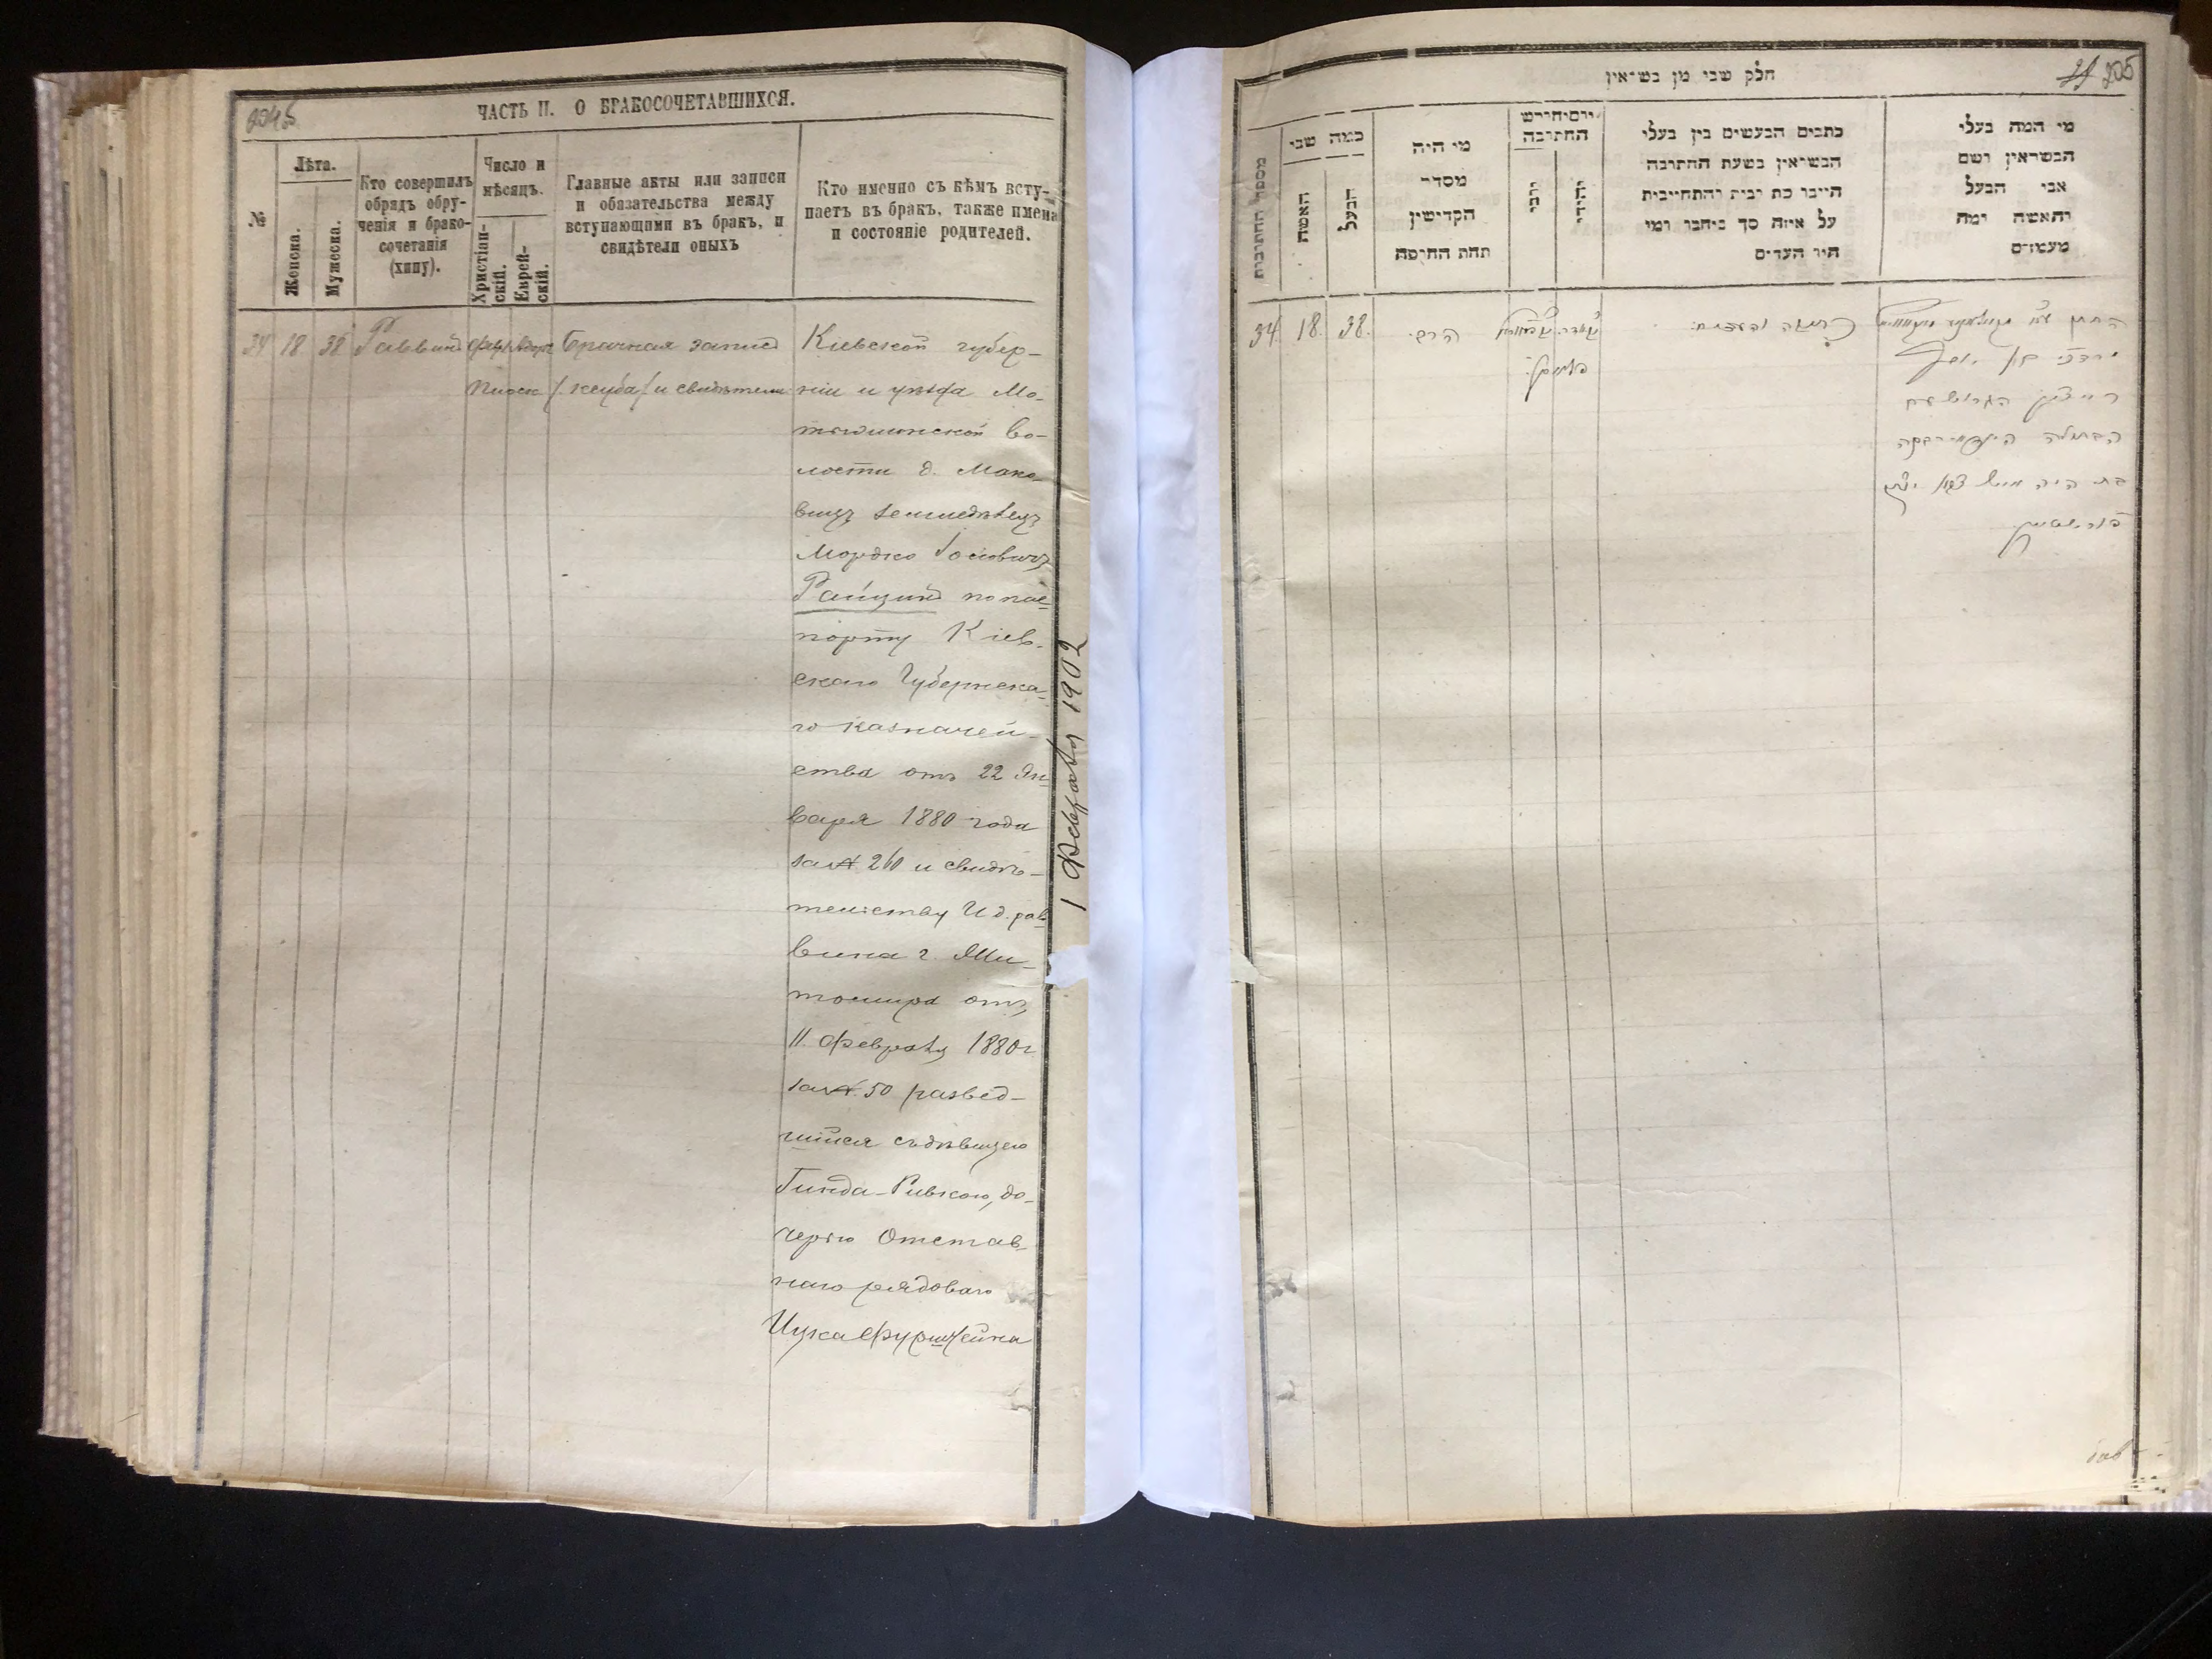 204об
ЧАСТЬ II. О БРАКОСОЧЕТАВШИХСЯ.
№
Лѣта.
Женска.
Мужеска.
Кто совершилъ
обрядъ обру-
ченія и брако-
сочетанія
(хипу).
Число и
мѣсяцъ.
Христіан-
скій.
Еврей-
скій.
Главные акты или записи
и обязательства между
вступающими въ бракъ, и
свидѣтели оныхъ
Кто именно съ кѣмъ всту-
паетъ въ бракъ, также имена
и состояніе родителей.
34 18 38 Раввинъ
Брачная запись
и свидѣтели
Кіевской губер-
ніи и уѣзда Мо-
тыжинской во-
лости д. Мако-
вищъ земледѣлецъ
Мордко Іосіовичъ
Райцинъ по пас-
порту Кіев-
скаго Губернска-
го Казначей-
ства отъ 22 Ян-
варя 1880 года
за № 260 и свидѣ-
тельству И д. рав-
вина г. Жи-
томира отъ
11 Февраля 1880 г
за № 50 развед-
шійся съ дѣвицею
Гинда-Ривкою, до-
черью Отстав-
наго рядоваго
Ицка Фурштейна
1 Февраля 1902
חלק שני מן נשואין
205
מספר החתונות
כמה שני
האשה
הבעל
מי היה
מסדר
הקדושין
תחת החופה
יום וחודש
החתונה
נוצרי
יהודי
כתבים הנעשים בין בעלי
הנשואין בשעת החתונה
היינו כת ובית והתחייבות
על איזה סך כיחבו ומי
היו העדים
מי המה בעלי
הנשואין ושם
אבי הבעל
והאשה ומה
מעמדם
34. 18. 38.
הרב.
כתובה ועדים.
החתן
רייצין הגרוש עם
הבתולה הינדא רבקה